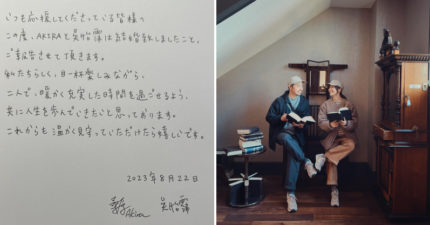 いつも応援してくださっている皆様へ
この度、AKIRAと呉怡霈は結婚致しましたこと、
ご報告させて頂きます。
私たちらしく、日一杯楽しみながら、
二人で、暖かく充実した時間を過ごせるよう、
共に人生を歩んでいきたいと思っております。
これからも温かく見守っていただけたら嬉しいです。
2023年8月22日
Akira 呉怡霈